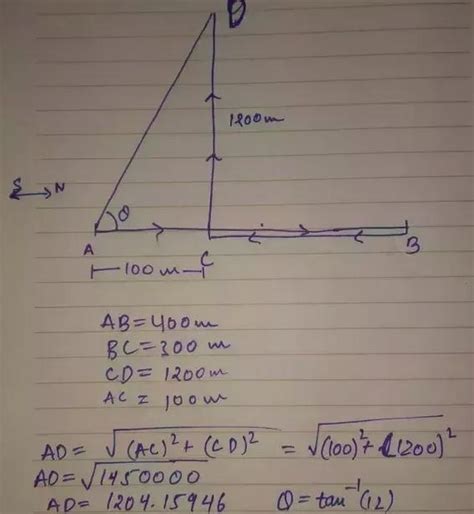 D
1200m
S N
θ
A C B
100 m
AB = 400m
BC = 300 m
CD = 1200m
AC = 100m
AD = √(AC)² + (CD)² = √(100)² + (1200)²
AD = √1450000
AD = 1204.15946 θ = tan⁻¹(12)